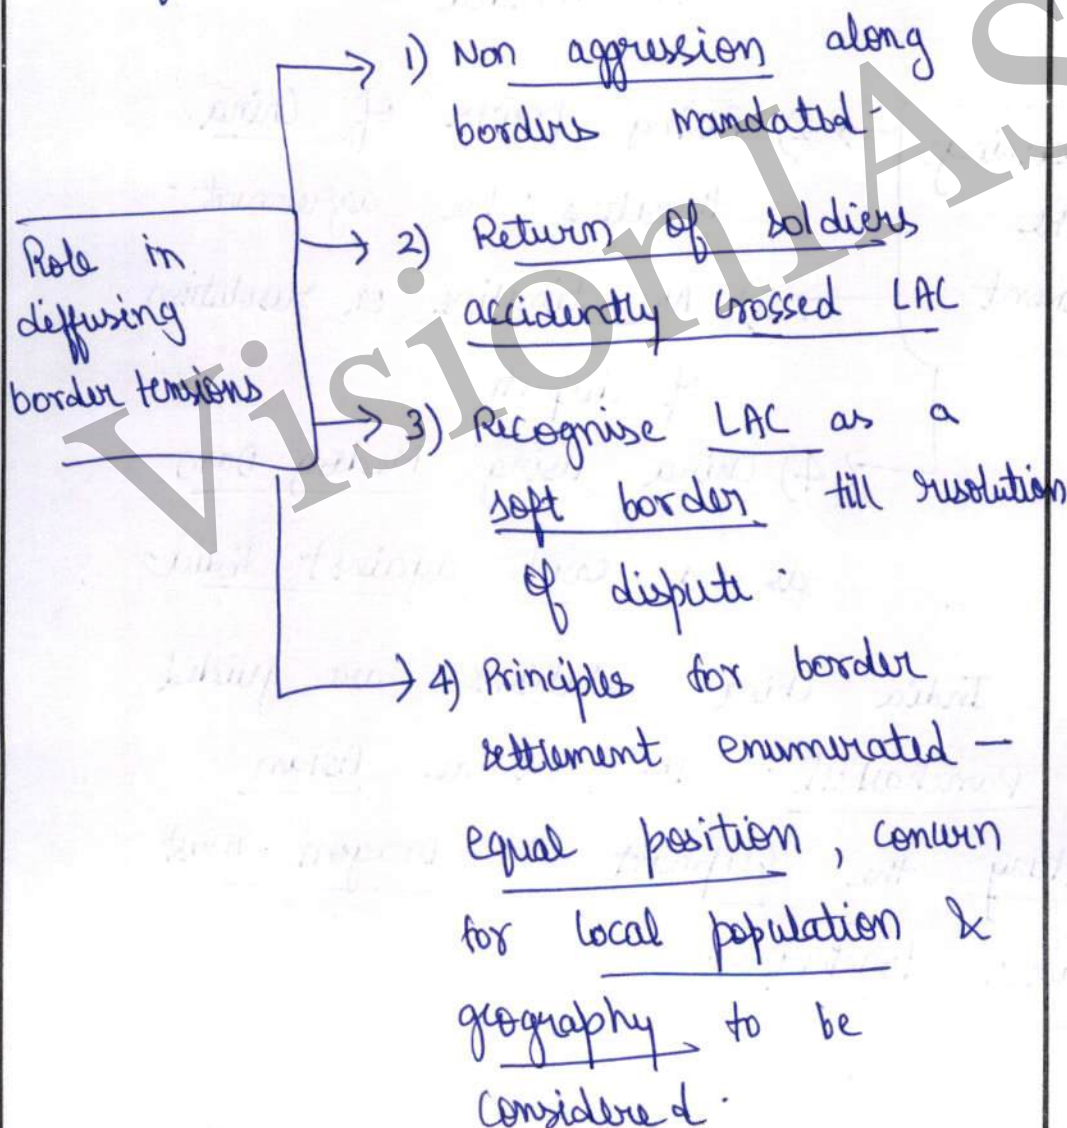 1) Non aggression along
borders mandated.
Role in
diffusing
border tensions
2) Return of soldiers
accidently crossed LAC
3) Recognise LAC as a
soft border till resolution
of dispute.
4) Principles for border
settlement enumerated —
equal position, concern
for local population &
geography to be
considered.
VisionIAS